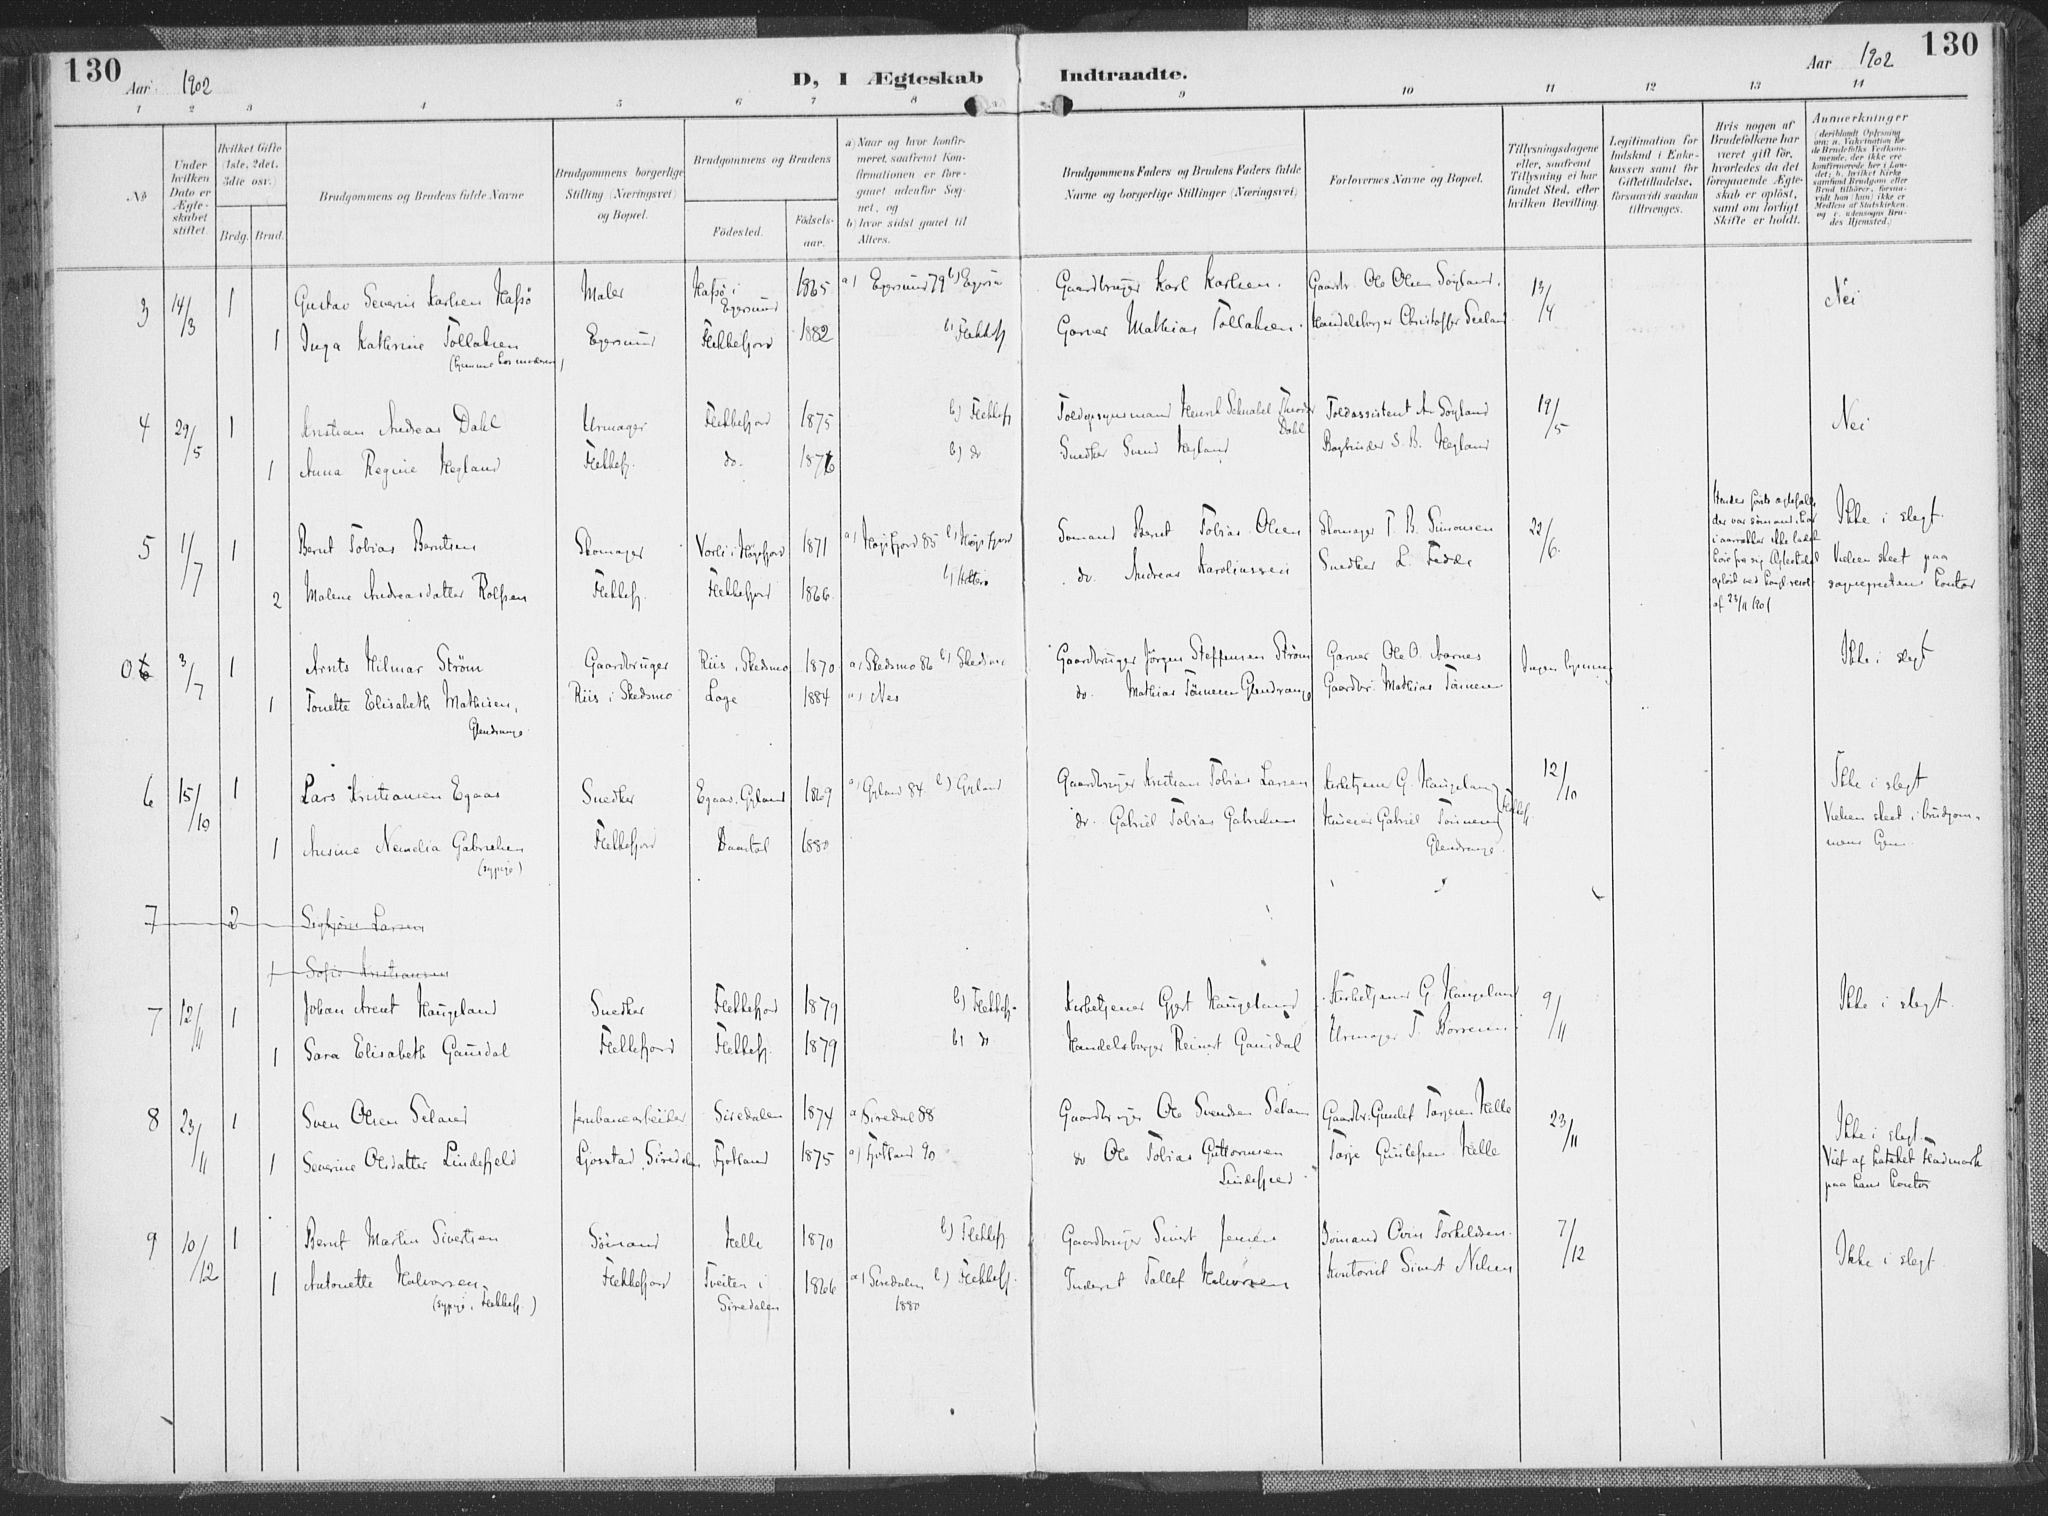 130
Aar 1902
D, I Ægteskab Indtraadte.
Aar 1902
130
1 2 3 4 5 6 7 8 9 10 11 12 13 14
No
Under hvilken Dato er Ægteskabet stiftet.
Hvilket Gifte (1ste, 2det, 3die osv.)
Brdg. Brud.
Brudgommens og Brudens fulde Navne
Brudgommens borgerlige Stilling (Næringsvei) og Bopæl.
Brudgommens og Brudens
Födested.
Födselsaar.
a) Naar og hvor konfirmeret, saafremt Konfirmationen er foregaaet udenfor Sognet, og
b) hvor sidst gaaet til Alters.
Brudgommens Faders og Brudens Faders fulde Navne og borgerlige Stillinger (Næringsvei)
Forlovernes Navne og Bopæl.
Tillysningsdagene eller, saafremt Tillysning ei har fundet Sted, efter hvilken Bevilling.
Legitimation for Indskud i Enkekassen samt for Giftetilladelse, forsaavidt saadan tiltrænges.
Hvis nogen af Brudefolkene har været gift för, hvorledes da det foregaaende Ægteskab er oplöst, samt om lovligt Skifte er holdt.
Anmerkninger
3 14/3 1 Gustav Severin Karlsen Hafsö Maler Hafsö i Egersund 1865 a) Egersund 79 b) Egersu Gaardbruger Karl Karlsen. Gaardbr. Ole Olsen Söyland. 13/4 Nei
1 Inga Kathrine Tollaksen Egersund Flekkefjord 1882 b) Flekkefj Garver Mathias Tollaksen. Handelsborger Christoffer Seeland
(hjemme hos moderen)
4 29/5 1 Kristian Andreas Dahl Urmager Flekkefjord 1875 b) Flekkefj Toldopsynsmand Henrik Schnabel Theodor Dahl Toldassistent A. Söyland 19/5 Nei
1 Anna Regine Hegland Flekkefj. do. 1876 b) do Snedker Svend Hegland Bogbinder S. B. Hegland
5 1/7 1 Bernt Tobias Berntsen Skomager Vorli i Högsfjord 1871 a) Högsfjord 85 b) Högsfjord Sömand Bernt Tobias Olsen Skomager T. B. Simonsen 22/6. Ikke i slegt.
2 Malene Andreasdatter Rolfsen Flekkefj. Flekkefjord 1866. b) Hitterö do. Andreas Karoliussen Snedker L. Fedde Vielsen skeet paa sognepresten kontor
af 23/11 1901
0 3/7 1 Arnts Hilmar Ström Gaardbruger Riis i Skedsmo 1870 a) Skedsmo 86 b) Skedsmo Gaardbruger Jörgen Steffensen Ström Garver Ole O. Aarnes Ingen lysning Ikke i slegt
1 Tonette Elisabeth Mathisen, Riis i Skedsmo Loge 1884 a) Nes do. Mathias Tönnesen Glendrange Gaardbr. Mathias Tönnesen
Glendrange
6 15/10 1 Lars Kristiansen Egaas Snedker Egaas, Gyland 1869 a) Gyland 84 b) Gyland Gaardbruger Kristian Tobias Larsen Kirketjener G. Haugeland 12/10 Ikke i slegt
1 Ansine Nemelia Gabrielsen Flekkefjord 1880 do. Gabriel Tobias Gabrielsen Gabriel Tönnesen Flekkefj Vielsen skeet i brudgommens hjem.
(sypige) Glendrange
7 2 Sigbjörn Larsen
1 Sofie Kristiansen
7 12/11 1 Johan Arent Haugeland Snedker Flekkefjord 1879 b) Flekkefj. Kirketjener Gjert Haugeland Kirketjener G Haugeland 9/11 Ikke i slegt.
1 Sara Elisabeth Gausdal Flekkefjord Flekkefj. 1879 b) do Handelsborger Reinert Gausdal Urmager T Börresen
8 23/11 1 Sven Olsen Seland Jernbanearbeider Siredalen 1874 a Siredal 88 Gaardbruger Ole Svendsen Selan Gaardbr. Gunlef Tarjesen Helle 23/11 Ikke i slegt.
1 Severine Olsdatter Lindefjeld Ljosstad, Siredalen Fjotland 1875 a) Fjotland 90 do Ole Tobias Guttormsen Lindefjeld Tarje Gunlefsen Helle Viet af kateket Hadmark paa hans kontor
9 10/12 1 Bernt Martin Sivertsen Sömand Helle 1870 b) Flekkefj Gaardbruger Sivert Jensen Sömand Even Torkildsen. 7/12 Ikke i slegt.
1 Antonette Halvorsen. Flekkefjord Tveiten i Siredalen 1866 a) Siredalen 1880 b) Flekkefj. Inderst Tallef Halvorsen Kontorist Sivert Nilsen
(sypige i Flekkefj.)